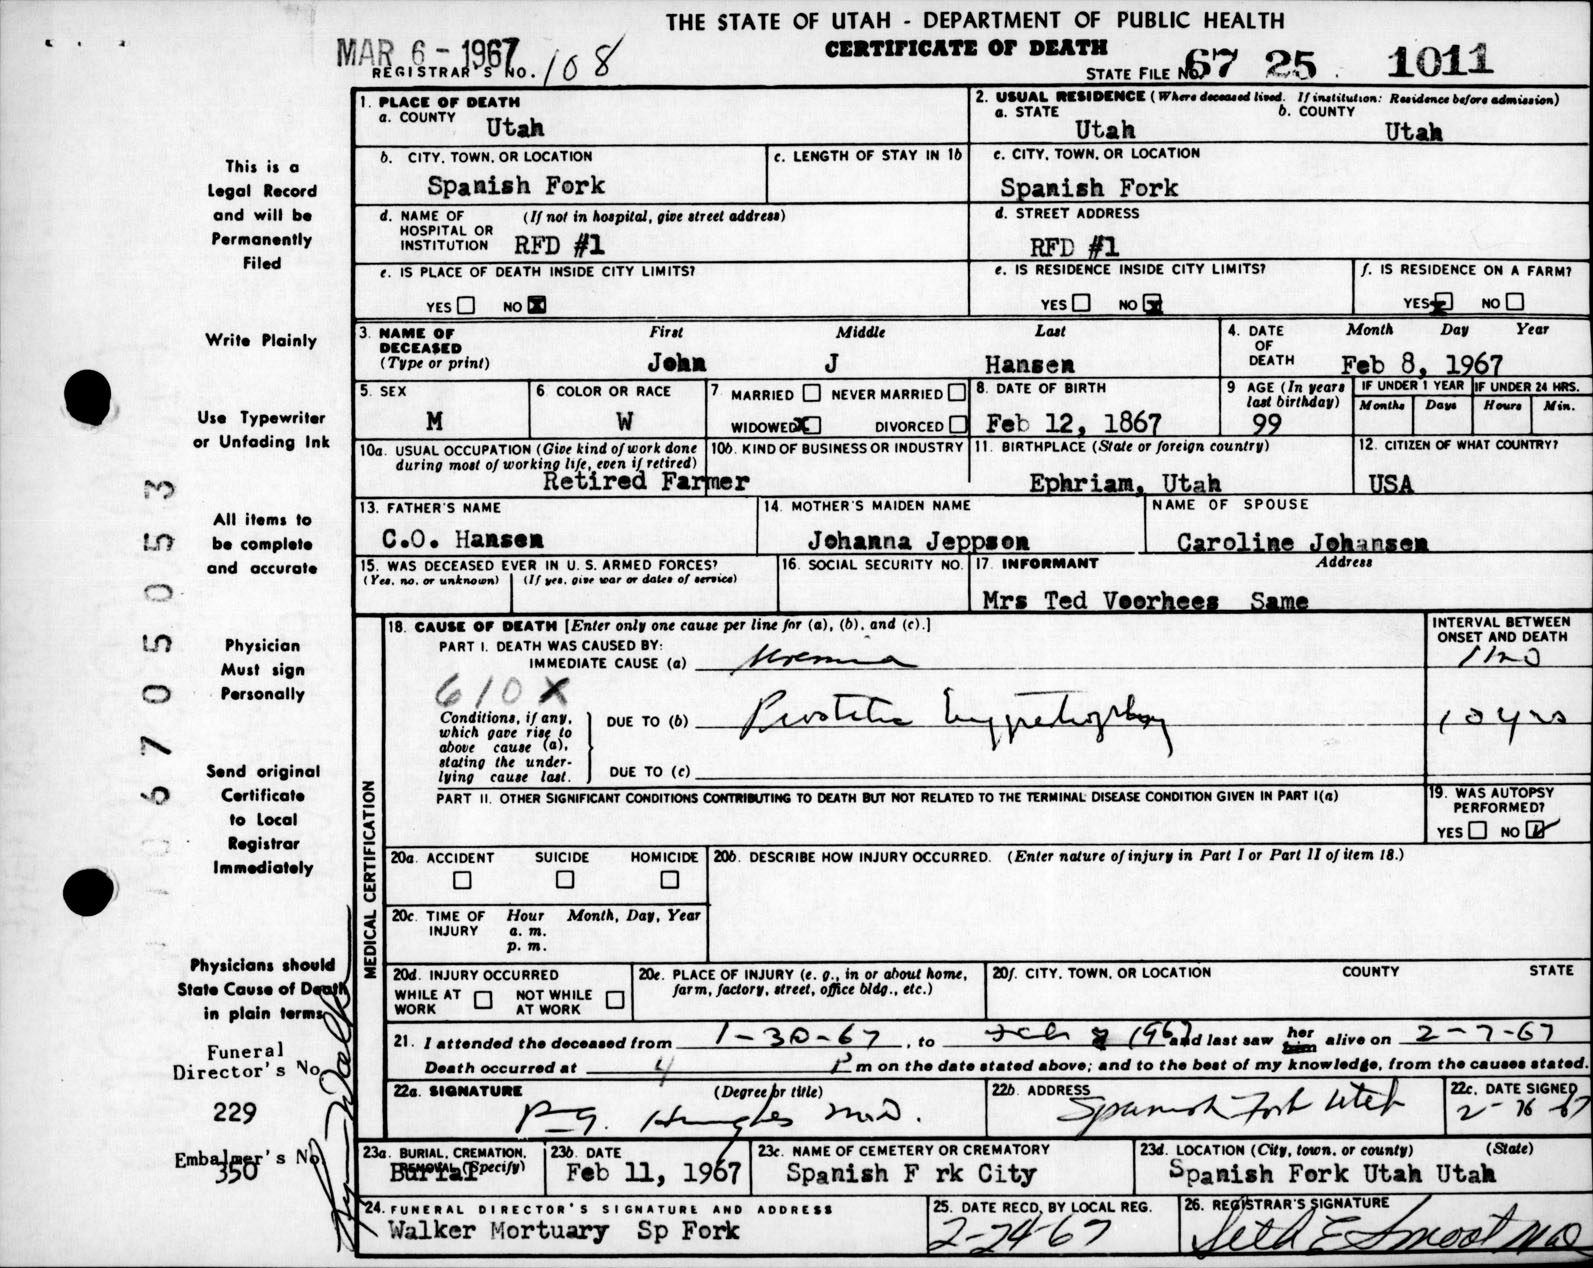 THE STATE OF UTAH - DEPARTMENT OF PUBLIC HEALTH
CERTIFICATE OF DEATH
MAR 6 - 1967
REGISTRAR'S NO. 108
STATE FILE NO. 67 25 1011
1. PLACE OF DEATH
a. COUNTY Utah
2. USUAL RESIDENCE (Where deceased lived. If institution: Residence before admission)
a. STATE Utah
b. COUNTY Utah
b. CITY, TOWN, OR LOCATION
Spanish Fork
c. LENGTH OF STAY IN 1b
c. CITY, TOWN, OR LOCATION
Spanish Fork
d. NAME OF HOSPITAL OR INSTITUTION (If not in hospital, give street address)
RFD #1
d. STREET ADDRESS
RFD #1
e. IS PLACE OF DEATH INSIDE CITY LIMITS?
YES NO X
e. IS RESIDENCE INSIDE CITY LIMITS?
YES NO X
f. IS RESIDENCE ON A FARM?
YES X NO
3. NAME OF DECEASED (Type or print)
First Middle Last
John J Hansen
4. DATE OF DEATH
Month Day Year
Feb 8, 1967
5. SEX
M
6. COLOR OR RACE
W
7. MARRIED NEVER MARRIED
WIDOWED X DIVORCED
8. DATE OF BIRTH
Feb 12, 1867
9. AGE (In years last birthday)
99
IF UNDER 1 YEAR
Months Days
IF UNDER 24 HRS.
Hours Min.
10a. USUAL OCCUPATION (Give kind of work done during most of working life, even if retired)
Retired Farmer
10b. KIND OF BUSINESS OR INDUSTRY
11. BIRTHPLACE (State or foreign country)
Ephriam, Utah
12. CITIZEN OF WHAT COUNTRY?
USA
13. FATHER'S NAME
C.O. Hansen
14. MOTHER'S MAIDEN NAME
Johanna Jeppson
NAME OF SPOUSE
Caroline Johansen
15. WAS DECEASED EVER IN U. S. ARMED FORCES?
(Yes, no, or unknown) (If yes, give war or dates of service)
16. SOCIAL SECURITY NO.
17. INFORMANT Address
Mrs Ted Voorhees Same
18. CAUSE OF DEATH [Enter only one cause per line for (a), (b), and (c).]
PART I. DEATH WAS CAUSED BY:
IMMEDIATE CAUSE (a) Uremia
INTERVAL BETWEEN ONSET AND DEATH
610X
Conditions, if any, which gave rise to above cause (a), stating the underlying cause last.
DUE TO (b) Prostatic hypertrophy
10 yrs
DUE TO (c)
PART II. OTHER SIGNIFICANT CONDITIONS CONTRIBUTING TO DEATH BUT NOT RELATED TO THE TERMINAL DISEASE CONDITION GIVEN IN PART I(a)
19. WAS AUTOPSY PERFORMED?
YES NO ✓
MEDICAL CERTIFICATION
20a. ACCIDENT SUICIDE HOMICIDE
20b. DESCRIBE HOW INJURY OCCURRED. (Enter nature of injury in Part I or Part II of item 18.)
20c. TIME OF INJURY Hour Month, Day, Year
a. m.
p. m.
20d. INJURY OCCURRED
WHILE AT WORK NOT WHILE AT WORK
20e. PLACE OF INJURY (e. g., in or about home, farm, factory, street, office bldg., etc.)
20f. CITY, TOWN, OR LOCATION COUNTY STATE
21. I attended the deceased from 1-30-67, to Feb 8 1967 and last saw her him alive on 2-7-67
Death occurred at 4 P m on the date stated above; and to the best of my knowledge, from the causes stated.
22a. SIGNATURE (Degree or title)
Hughes M.D.
22b. ADDRESS
Spanish Fork Utah
22c. DATE SIGNED
23a. BURIAL, CREMATION, REMOVAL (Specify)
Burial
23b. DATE
Feb 11, 1967
23c. NAME OF CEMETERY OR CREMATORY
Spanish F rk City
23d. LOCATION (City, town, or county) (State)
Spanish Fork Utah Utah
24. FUNERAL DIRECTOR'S SIGNATURE AND ADDRESS
Walker Mortuary Sp Fork
25. DATE RECD. BY LOCAL REG.
2-24-67
26. REGISTRAR'S SIGNATURE
Seth E Smoot MD
This is a
Legal Record
and will be
Permanently
Filed
Write Plainly
Use Typewriter
or Unfading Ink
All items to
be complete
and accurate
Physician
Must sign
Personally
Send original
Certificate
to Local
Registrar
Immediately
Physicians should
State Cause of Death
in plain terms
Funeral
Director's No.
229
Embalmer's No.
350
067050503